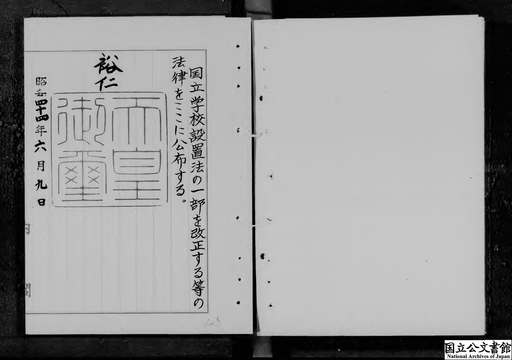 国立学校設置法の一部を改正する等の
法律をここに公布する。
裕仁
天皇
御璽
昭和四十四年六月九日
内閣
国立公文書館
National Archives of Japan